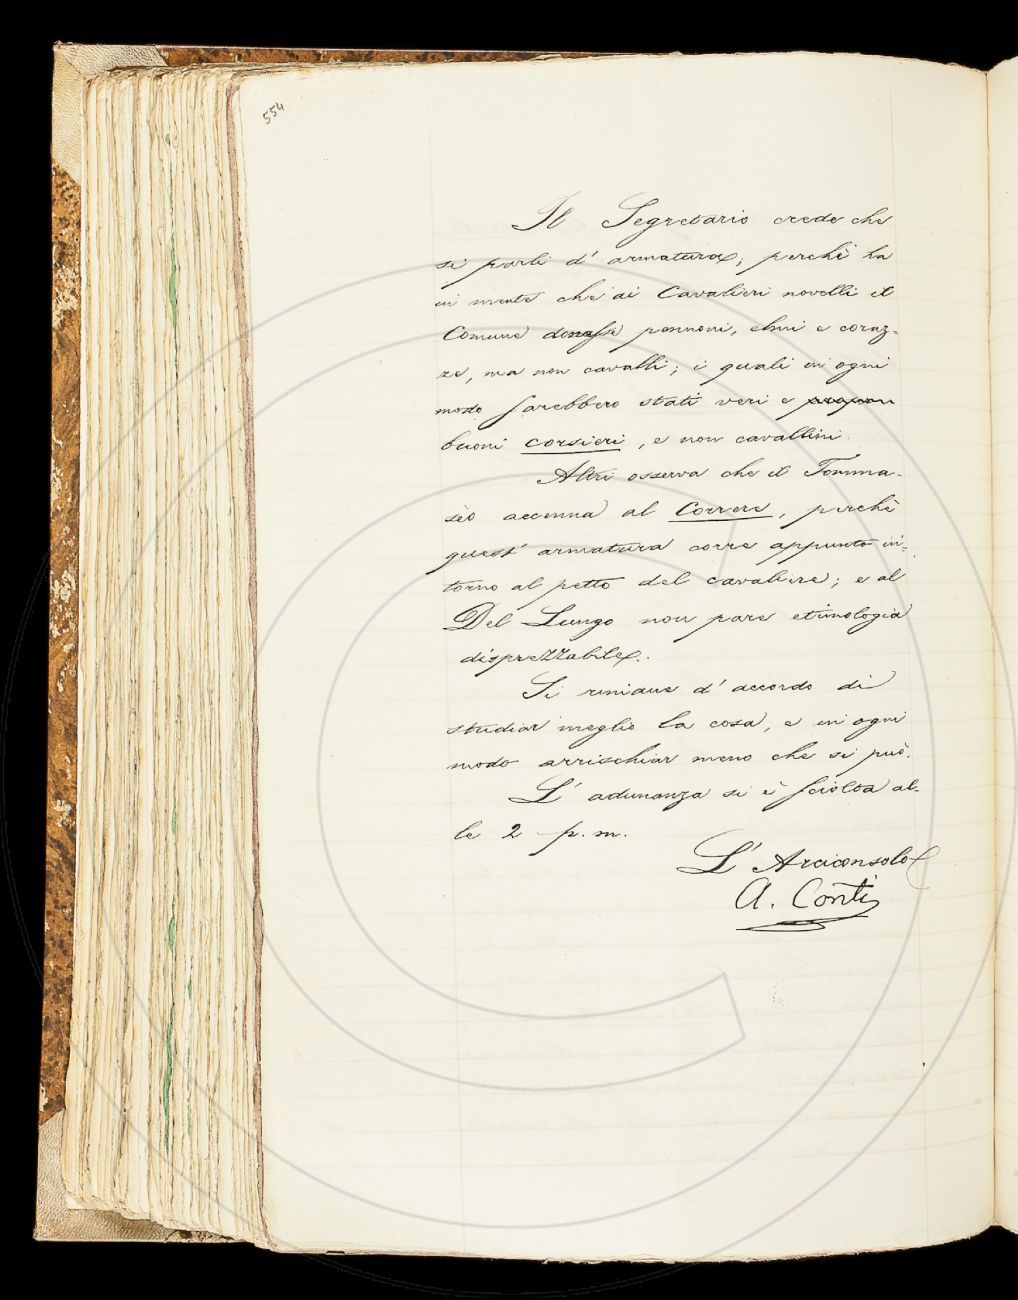 554
Il Segretario crede che
si parli d' armatura; perchè ha
in mente che ai Cavalieri novelli il
Comune donasse pennoni, elmi e coraz-
ze, ma non cavalli; i quali in ogni
modo sarebbero stati veri e
buoni corsieri, e non cavallini.
Altri osserva che il Tomma-
sèo accenna al Correre, perchè
quest' armatura corre appunto in-
torno al petto del cavaliere; e al
Del Lungo non pare etimologia
disprezzabile.
Si rimane d' accordo di
studiar meglio la cosa, e in ogni
modo arrischiar meno che si può.
L' adunanza si è sciolta al-
le 2 p. m.
L' Arciconsolo
A. Conti